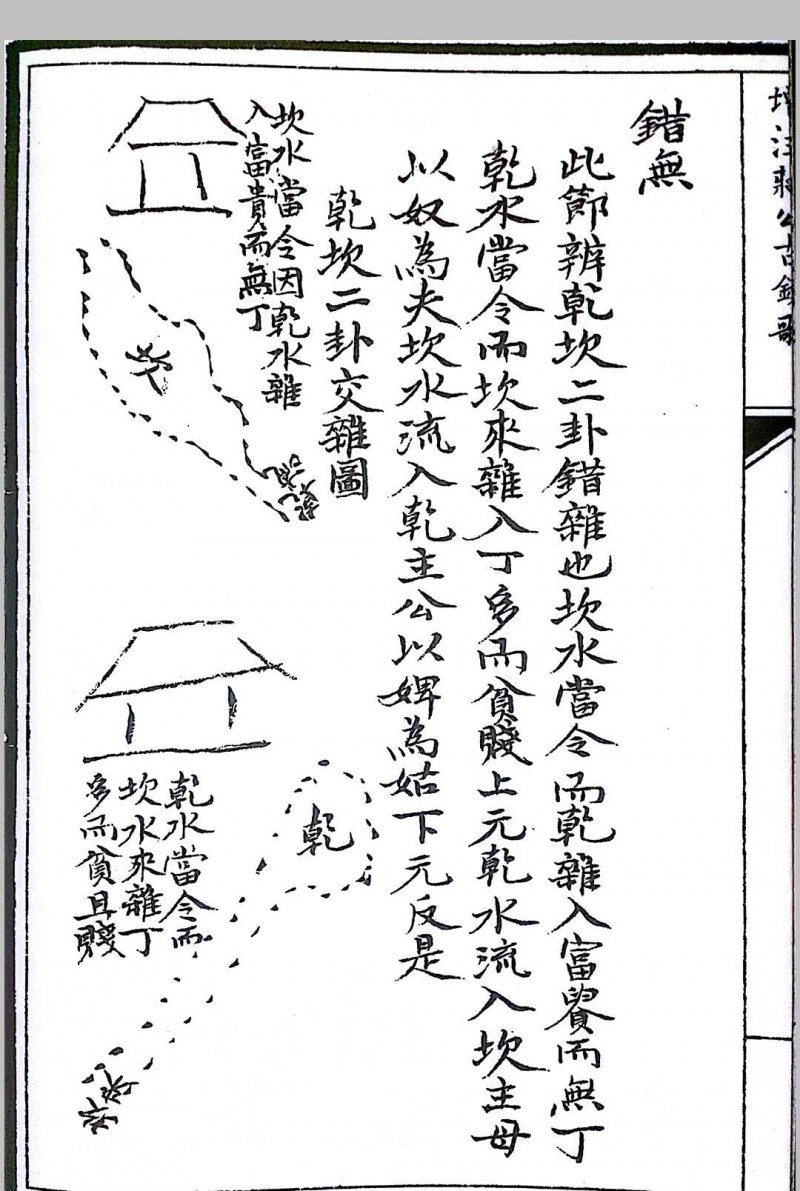 增注蔣公古鏡歌
錯無
此節辨乾坎二卦錯雜也坎水當令而乾雜入富貴而無丁
乾水當令而坎來雜入丁多而貧賤上元乾水流入坎主母
以奴為夫坎水流入乾主公以婢為姑下元反是
乾坎二卦交雜圖
坎水當令因乾水雜
入富貴而無丁
乾水當令而
坎水來雜丁
多而貧且賤
乾